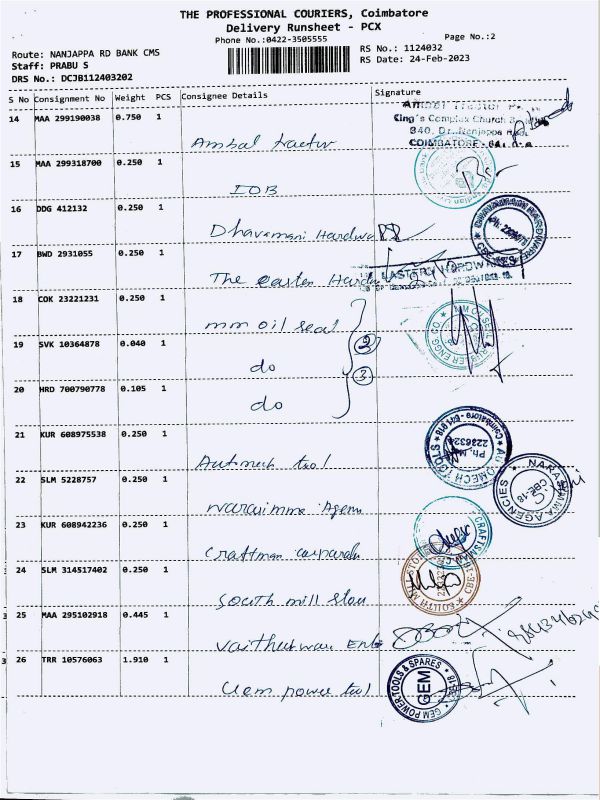 THE PROFESSIONAL COURIERS, Coimbatore
Delivery Runsheet - PCX
Phone No.:0422-3505555
Page No.:2
Route: NANJAPPA RD BANK CMS
RS No.: 1124032
Staff: PRABU S
RS Date: 24-Feb-2023
DRS No.: DCJB112403202
S No Consignment No Weight PCS Consignee Details Signature
14 MAA 299190038 0.750 1
King's Complex Church
COIMBATORE
Ambal tractor
15 MAA 299318700 0.250 1
IOB
16 DDG 412132 0.250 1
Dhavamani Hardwa
17 BWD 2931055 0.250 1
The easten Hardw
EASTERN HARDWARE
18 COK 23221231 0.250 1
mm oil seal
19 SVK 10364878 0.040 1
2
do
20 HRD 700790778 0.105 1
3
do
21 KUR 608975538 0.250 1
AUTOMECH TOOLS
Coimbatore
2236324
Automech tool
22 SLM 5228757 0.250 1
AGENCIES
CBE-18
23 KUR 608942236 0.250 1
CRAFTSMAN
24 SLM 314517402 0.250 1
SOUTH
South mill stor
25 MAA 295102918 0.445 1
26 TRR 10576063 1.910 1
GEM POWERTOOLS & SPARES
GEM
Gem power tool